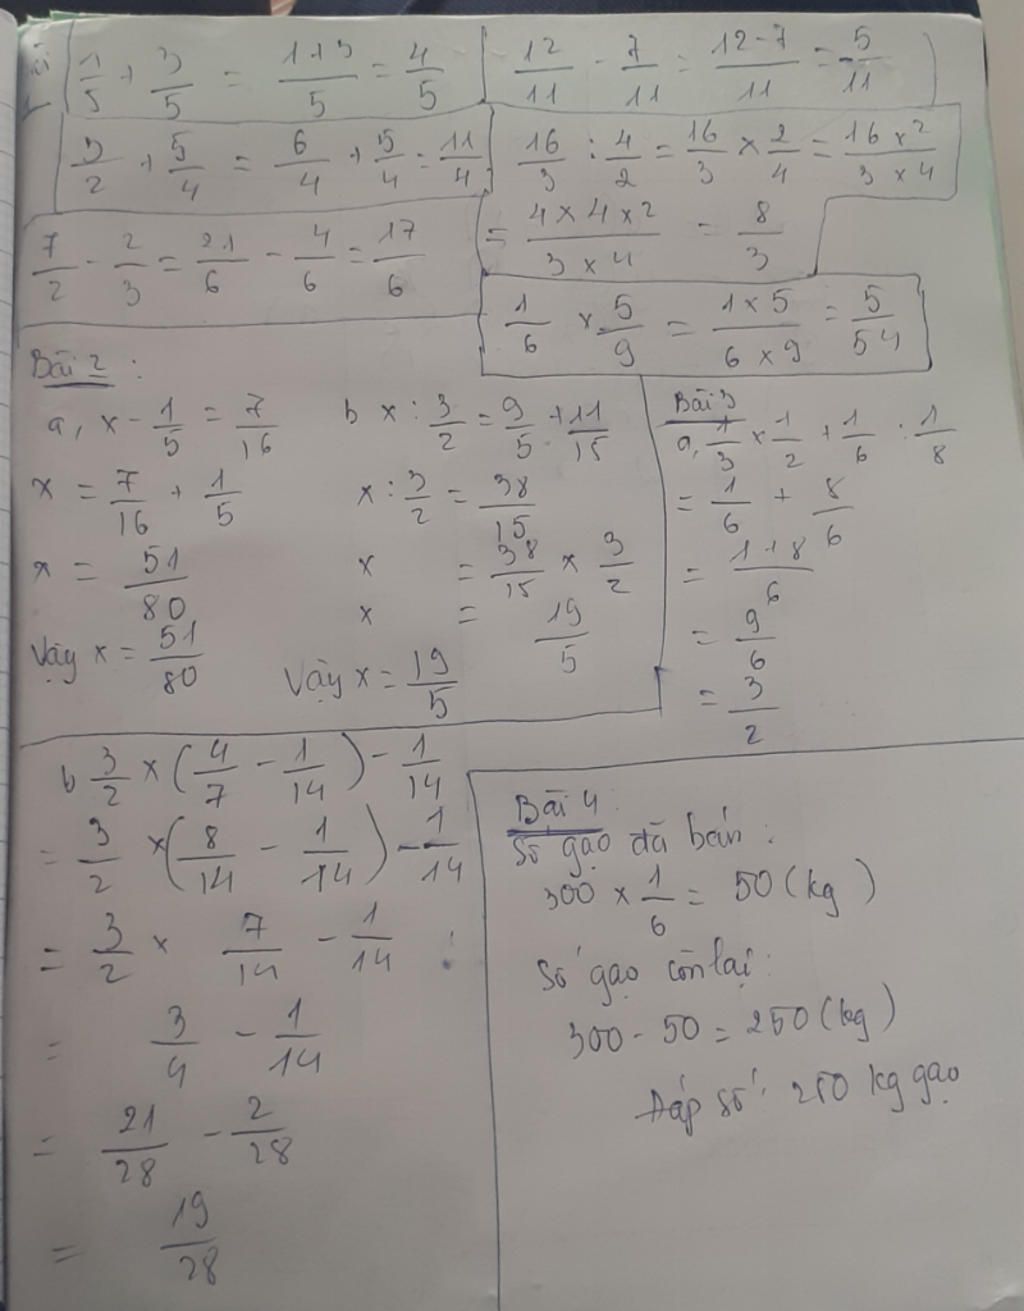 Bài 1
1/5 + 3/5 = 1+3/5 = 4/5
12/11 - 7/11 = 12-7/11 = 5/11
3/2 + 5/4 = 6/4 + 5/4 = 11/4
16/3 : 4/2 = 16/3 × 2/4 = 16×2/3×4
= 4×4×2/3×4 = 8/3
7/2 - 2/3 = 21/6 - 4/6 = 17/6
1/6 × 5/9 = 1×5/6×9 = 5/54
Bài 2 :
a, x - 1/5 = 7/16
x = 7/16 + 1/5
x = 51/80
Vậy x = 51/80
b x : 3/2 = 9/5 + 11/15
x : 3/2 = 38/15
x = 38/15 × 3/2
x = 19/5
Vậy x = 19/5
Bài 3
a, 1/3 × 1/2 + 1/6 : 1/8
= 1/6 + 8/6
= 1+8/6
= 9/6
= 3/2
b 3/2 × (4/7 - 1/14) - 1/14
= 3/2 × (8/14 - 1/14) - 1/14
= 3/2 × 7/14 - 1/14
= 3/4 - 1/14
= 21/28 - 2/28
= 19/28
Bài 4
Số gạo đã bán :
300 × 1/6 = 50 (kg)
Số gạo còn lại :
300 - 50 = 250 (kg)
Đáp số : 250 kg gạo